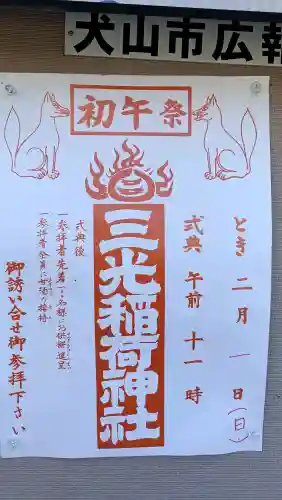 犬山市広報
初午祭
三光稲荷神社
とき 二月 一日(日)
式典 午前 十一時
式典後
一参拝者先着一〇〇名様にお供物進呈
一参拝者全員に甘酒の接待
御誘い合せ御参拝下さい